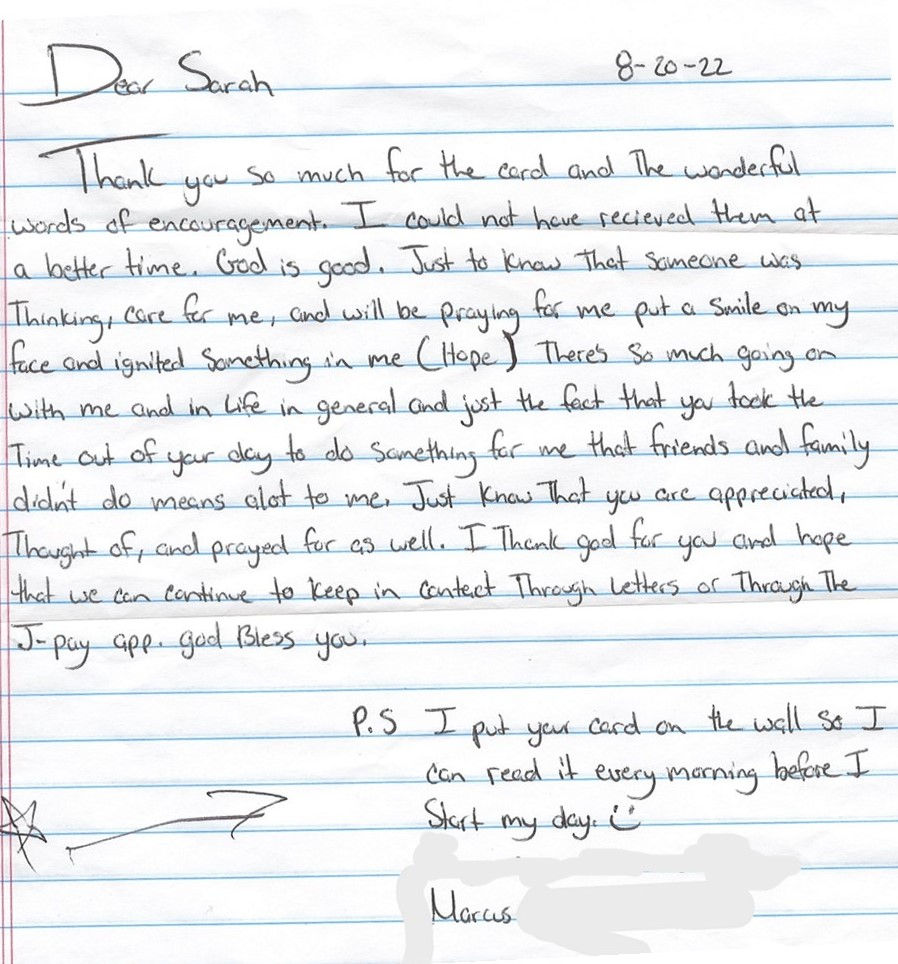 Dear Sarah
8-20-22
Thank you so much for the card and The wonderful
words of encouragement. I could not have recieved them at
a better time. God is good. Just to know That someone was
Thinking, care for me, and will be praying for me put a smile on my
face and ignited Something in me (Hope) There's so much going on
with me and in Life in general and just the fact that you took the
Time out of your day to do something for me that friends and family
didn't do means alot to me. Just know That you are appreciated,
Thought of, and prayed for as well. I Thank god for you and hope
that we can continue to keep in contact Through Letters or Through The
J-pay app. god Bless you.
P.S I put your card on the wall so I
can read it every morning before I
Start my day. 
Marcus